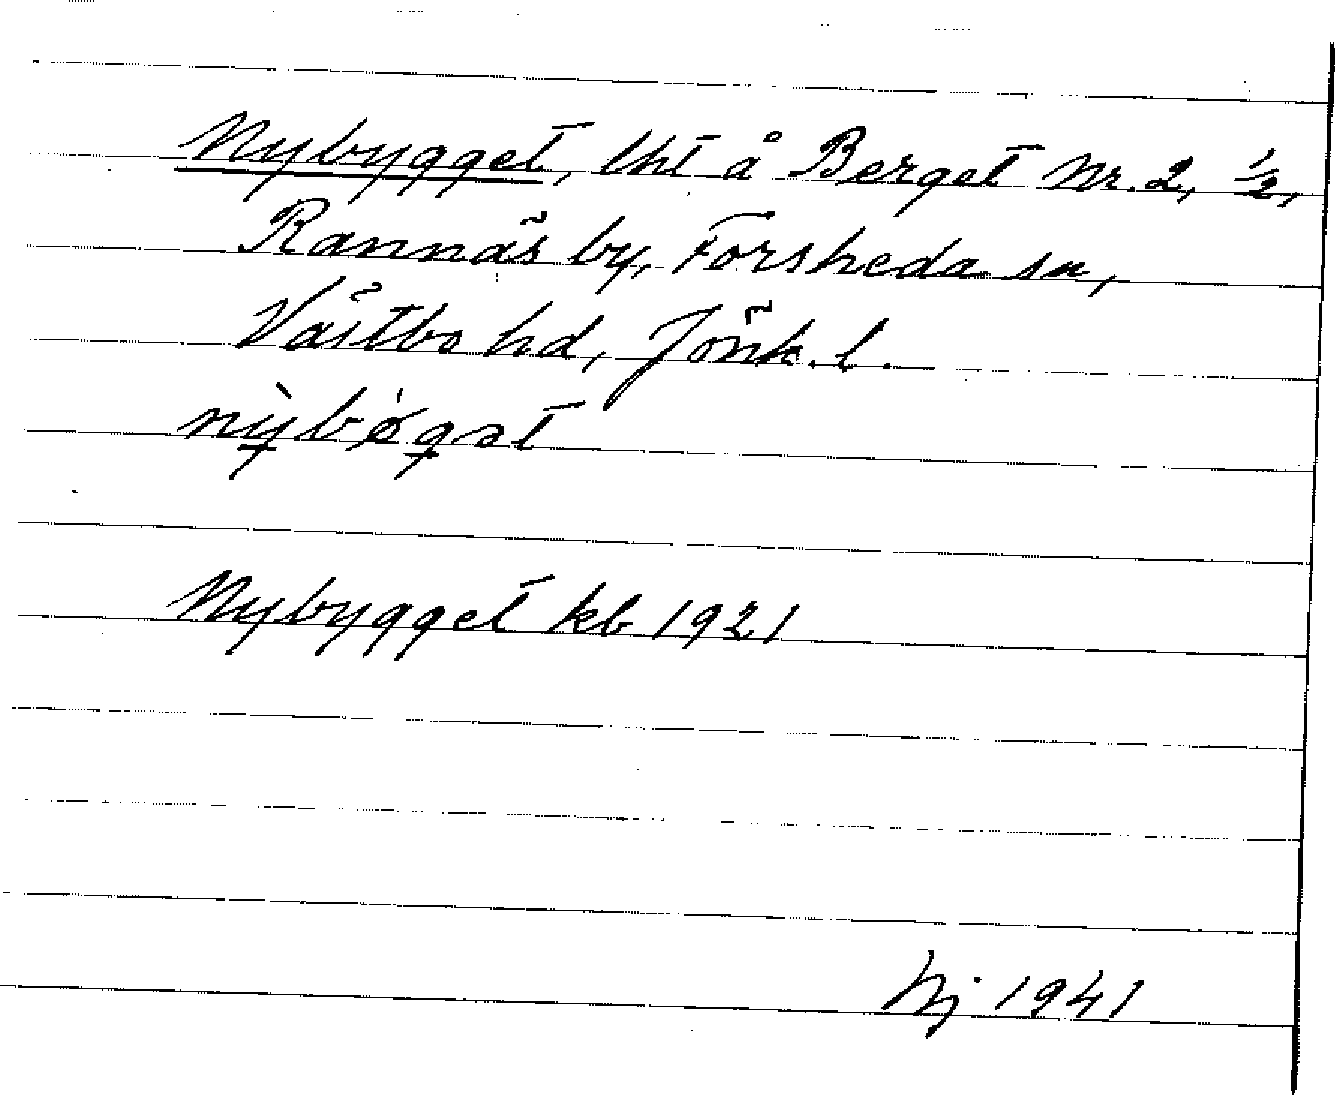 Nybygget, lht å Berget Nr. 2, ½,
Rannäs by, Forsheda sn,
Västbo hd, Jönk. l.
Nybygget kb 1921
hj 1941